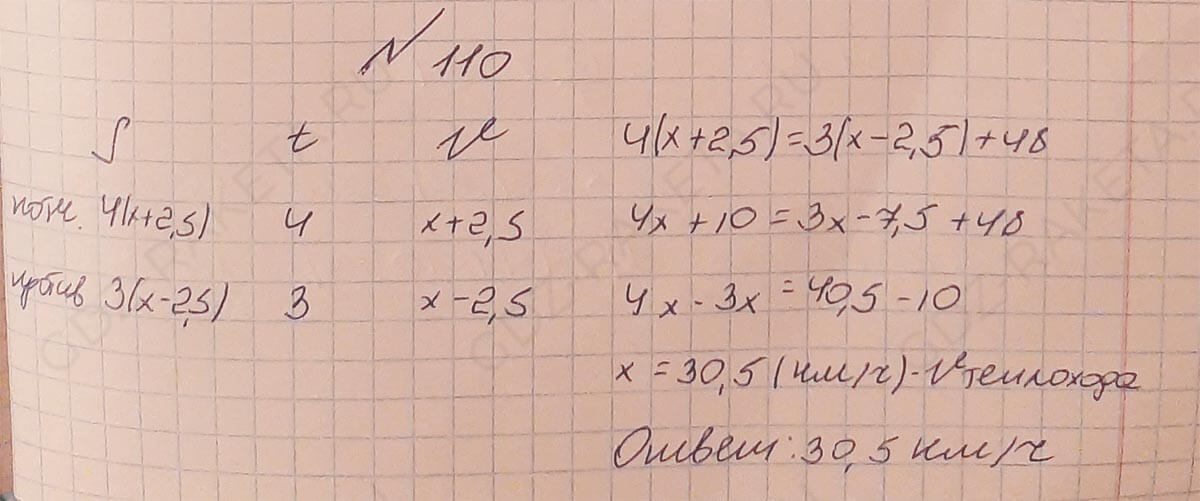 № 110
S t v
по теч. 4(x+2,5) 4 x+2,5
против 3(x-2,5) 3 x-2,5
4(x+2,5)=3(x-2,5)+48
4x+10=3x-7,5+48
4x-3x=40,5-10
x=30,5 (км/ч)-v теплохода
Ответ: 30,5 км/ч
GDZ-RAKETA.RU